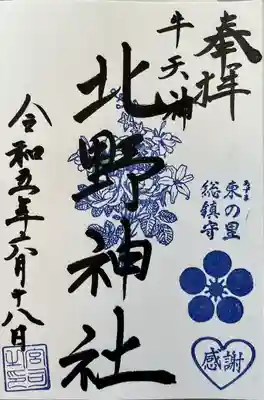 奉拝
牛天神
北野神社
あずま
東の里
総鎮守
感謝
令和五年六月十八日